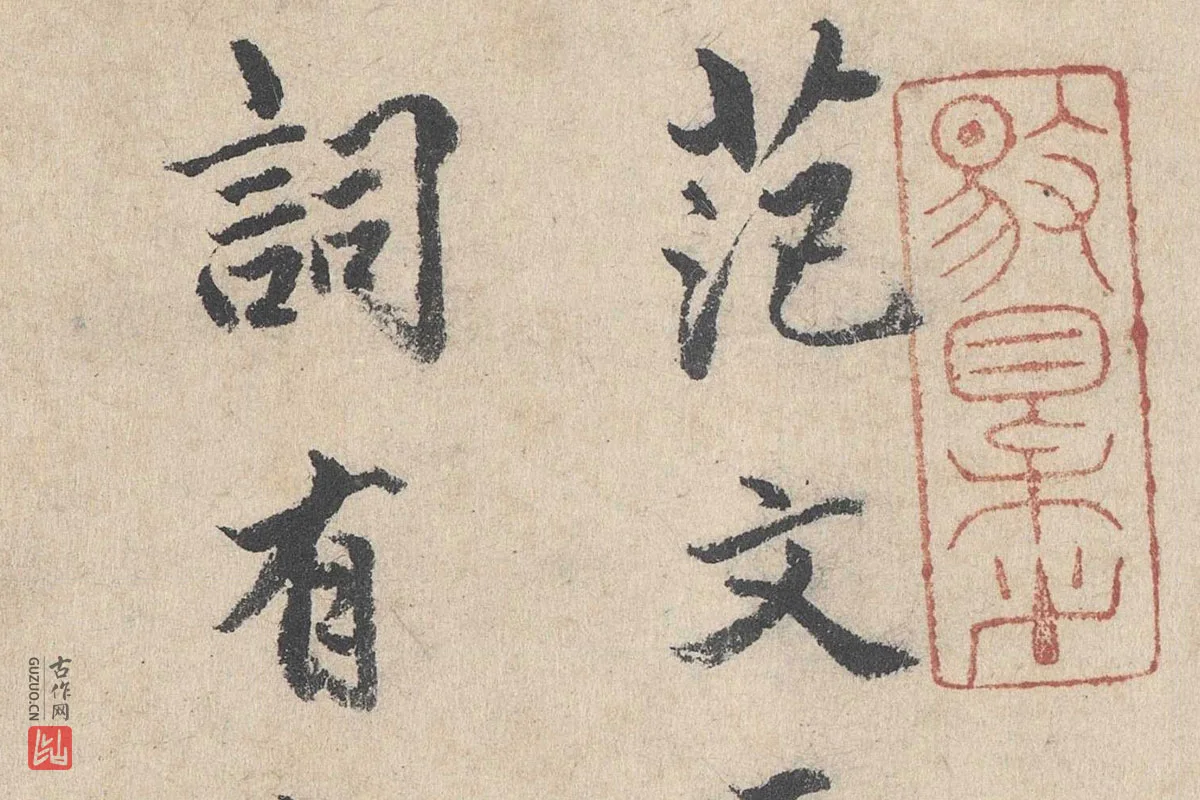 范文
詞有
古作网
GUZUO.CN